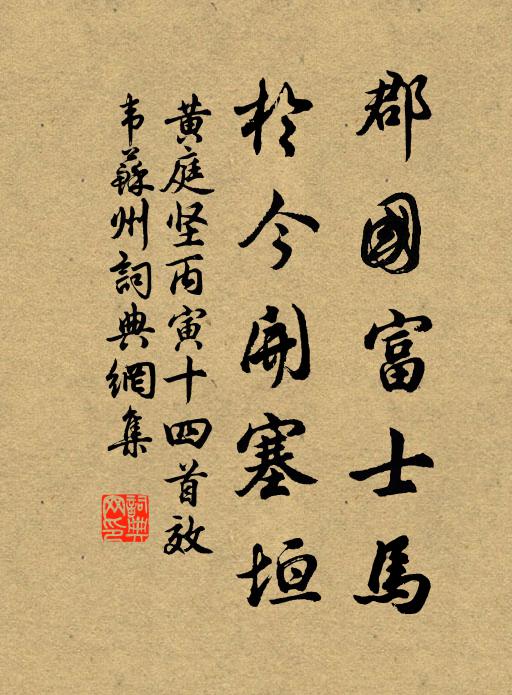 郡國富士馬
於今開塞垣
黄庭坚丙寅十四首效
韦蘇州詞典網集
詞典網印